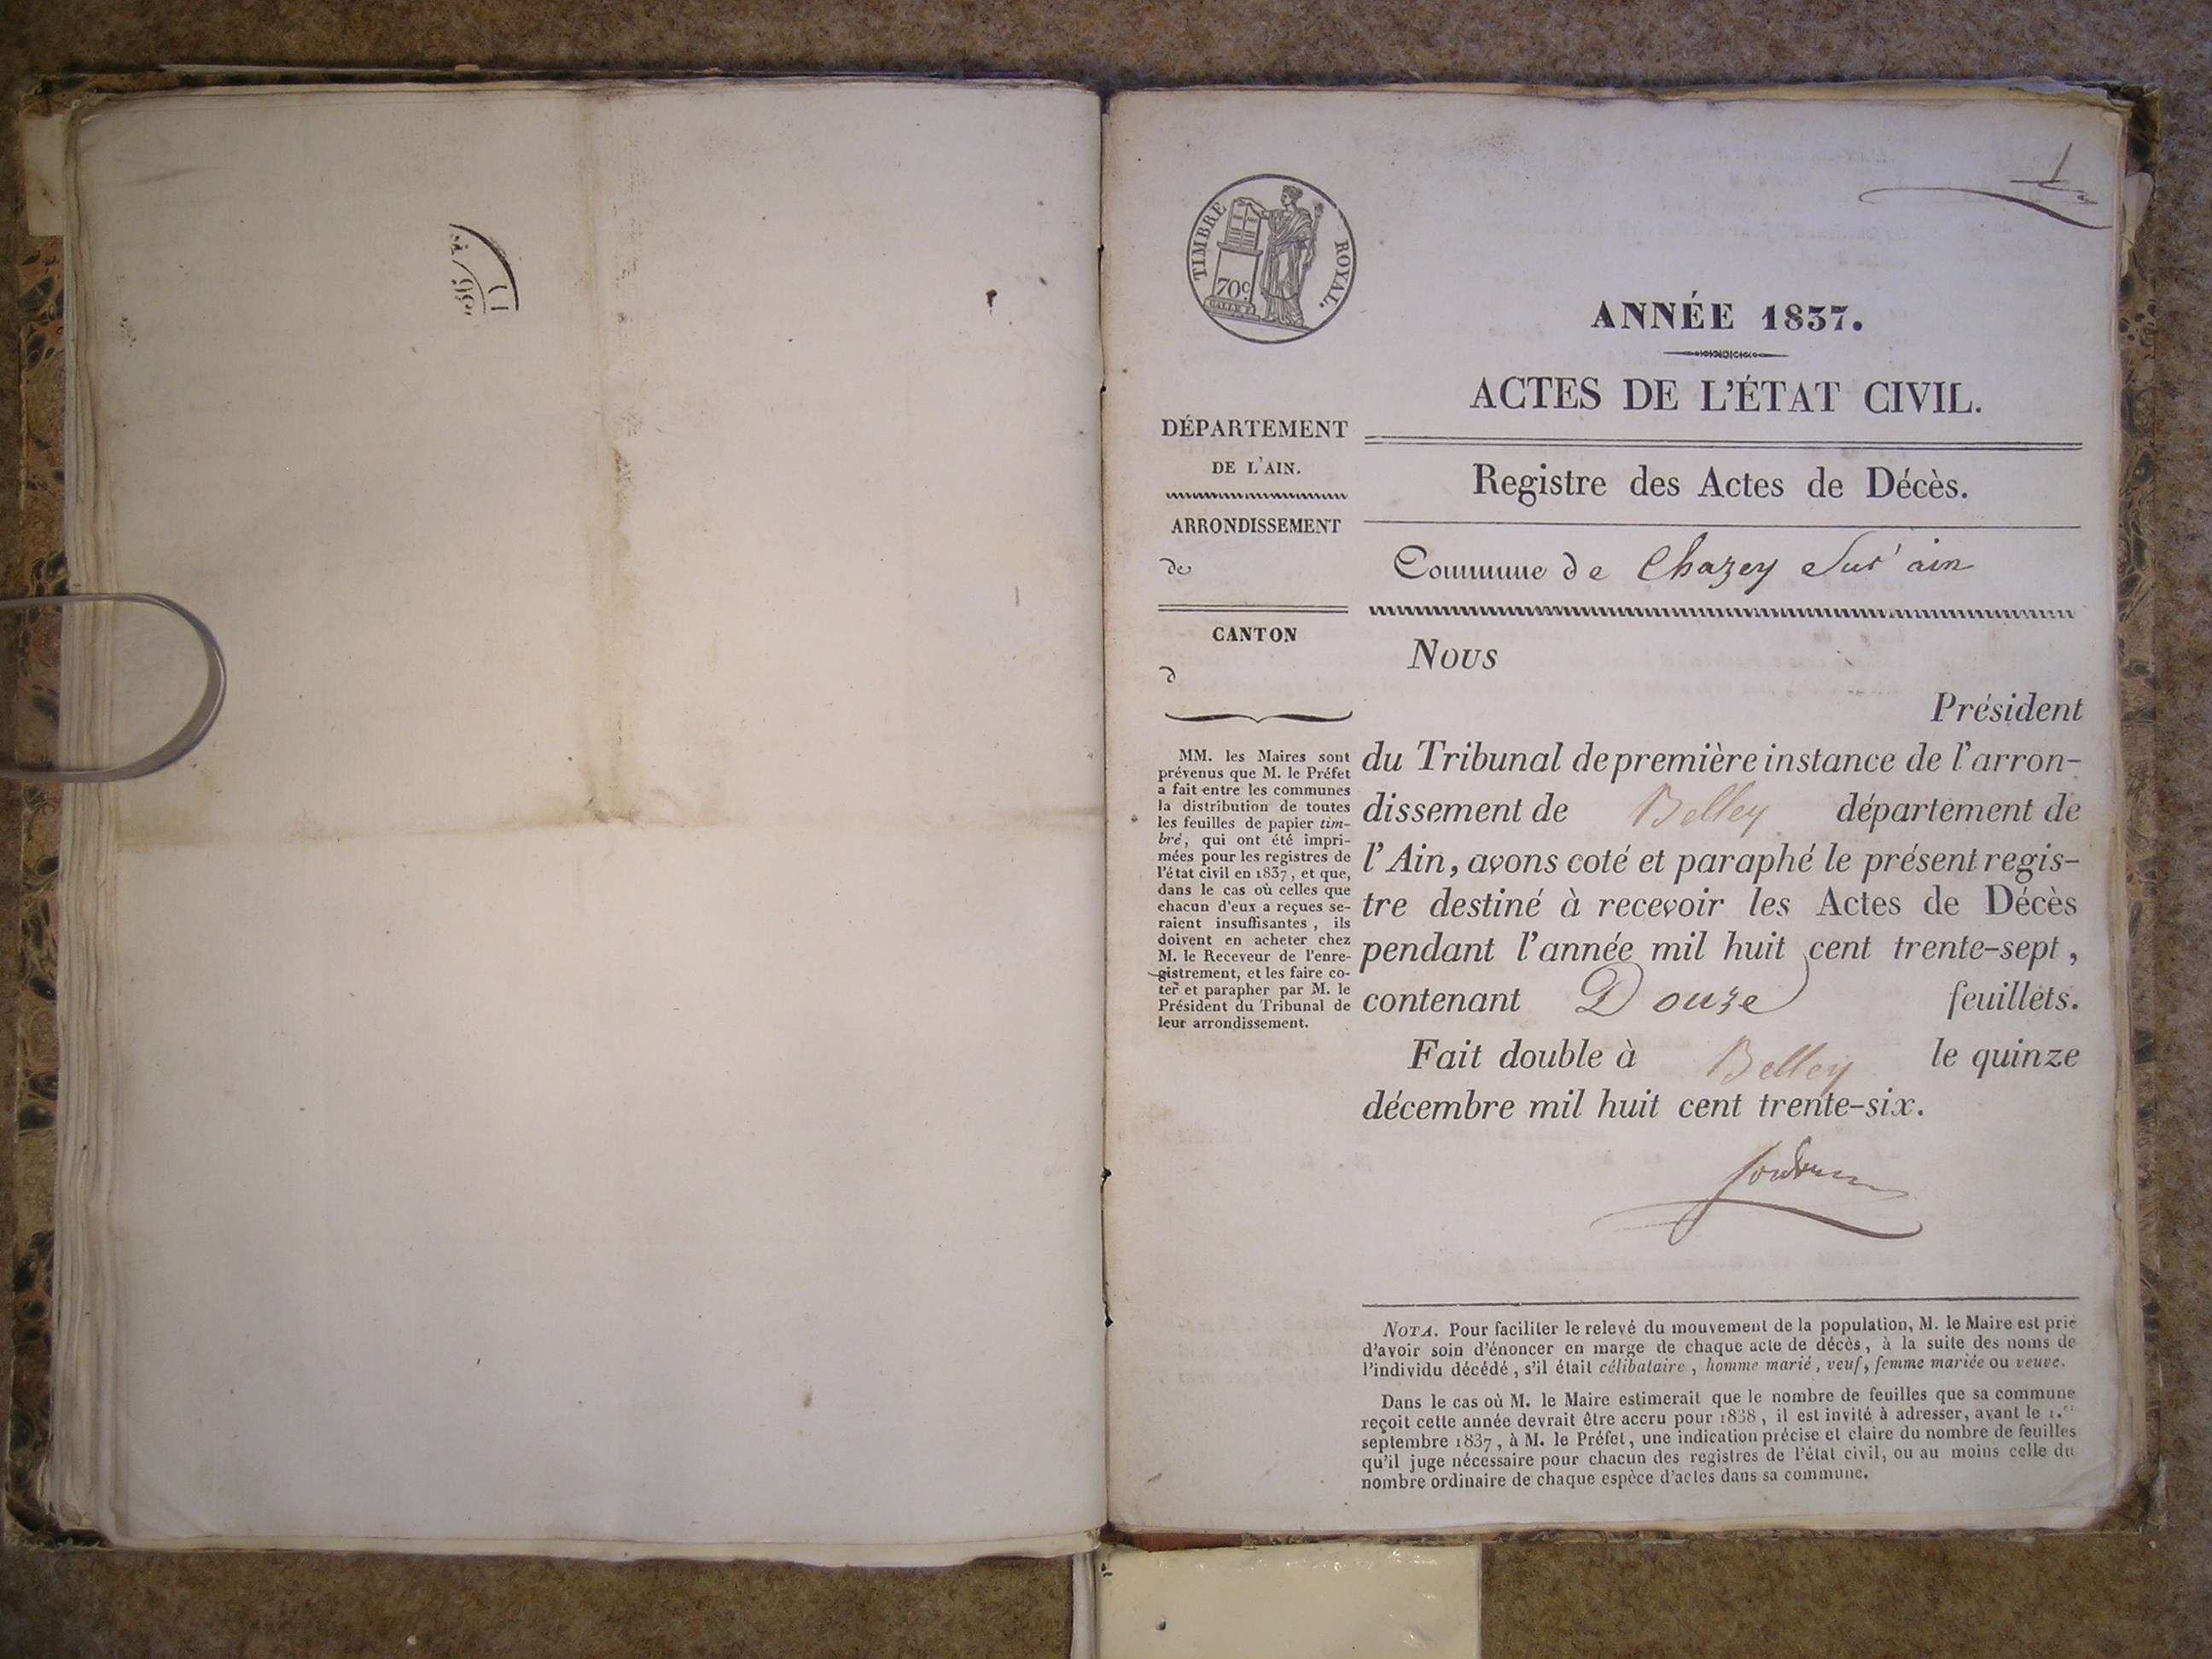 1
TIMBRE ROYAL.
70c
ANNÉE 1837.
ACTES DE L'ÉTAT CIVIL.
DÉPARTEMENT
DE L'AIN.
Registre des Actes de Décès.
ARRONDISSEMENT
de
Commune de Chazey Sur' ain
CANTON
d
MM. les Maires sont
prévenus que M. le Préfet
a fait entre les communes
la distribution de toutes
les feuilles de papier tim-
bré, qui ont été impri-
mées pour les registres de
l'état civil en 1837, et que,
dans le cas où celles que
chacun d'eux a reçues se-
raient insuffisantes, ils
doivent en acheter chez
M. le Receveur de l'enre-
gistrement, et les faire co-
ter et parapher par M. le
Président du Tribunal de
leur arrondissement.
Nous
Président
du Tribunal de première instance de l'arron-
dissement de Belley département de
l'Ain, avons coté et paraphé le présent regis-
tre destiné à recevoir les Actes de Décès
pendant l'année mil huit cent trente-sept,
contenant Douze feuillets.
Fait double à Belley le quinze
décembre mil huit cent trente-six.
NOTA. Pour faciliter le relevé du mouvement de la population, M. le Maire est prié
d'avoir soin d'énoncer en marge de chaque acte de décès, à la suite des noms de
l'individu décédé, s'il était célibataire, homme marié, veuf, femme mariée ou veuve.
Dans le cas où M. le Maire estimerait que le nombre de feuilles que sa commune
reçoit cette année devrait être accru pour 1838, il est invité à adresser, avant le 1.er
septembre 1837, à M. le Préfet, une indication précise et claire du nombre de feuilles
qu'il juge nécessaire pour chacun des registres de l'état civil, ou au moins celle du
nombre ordinaire de chaque espèce d'actes dans sa commune.